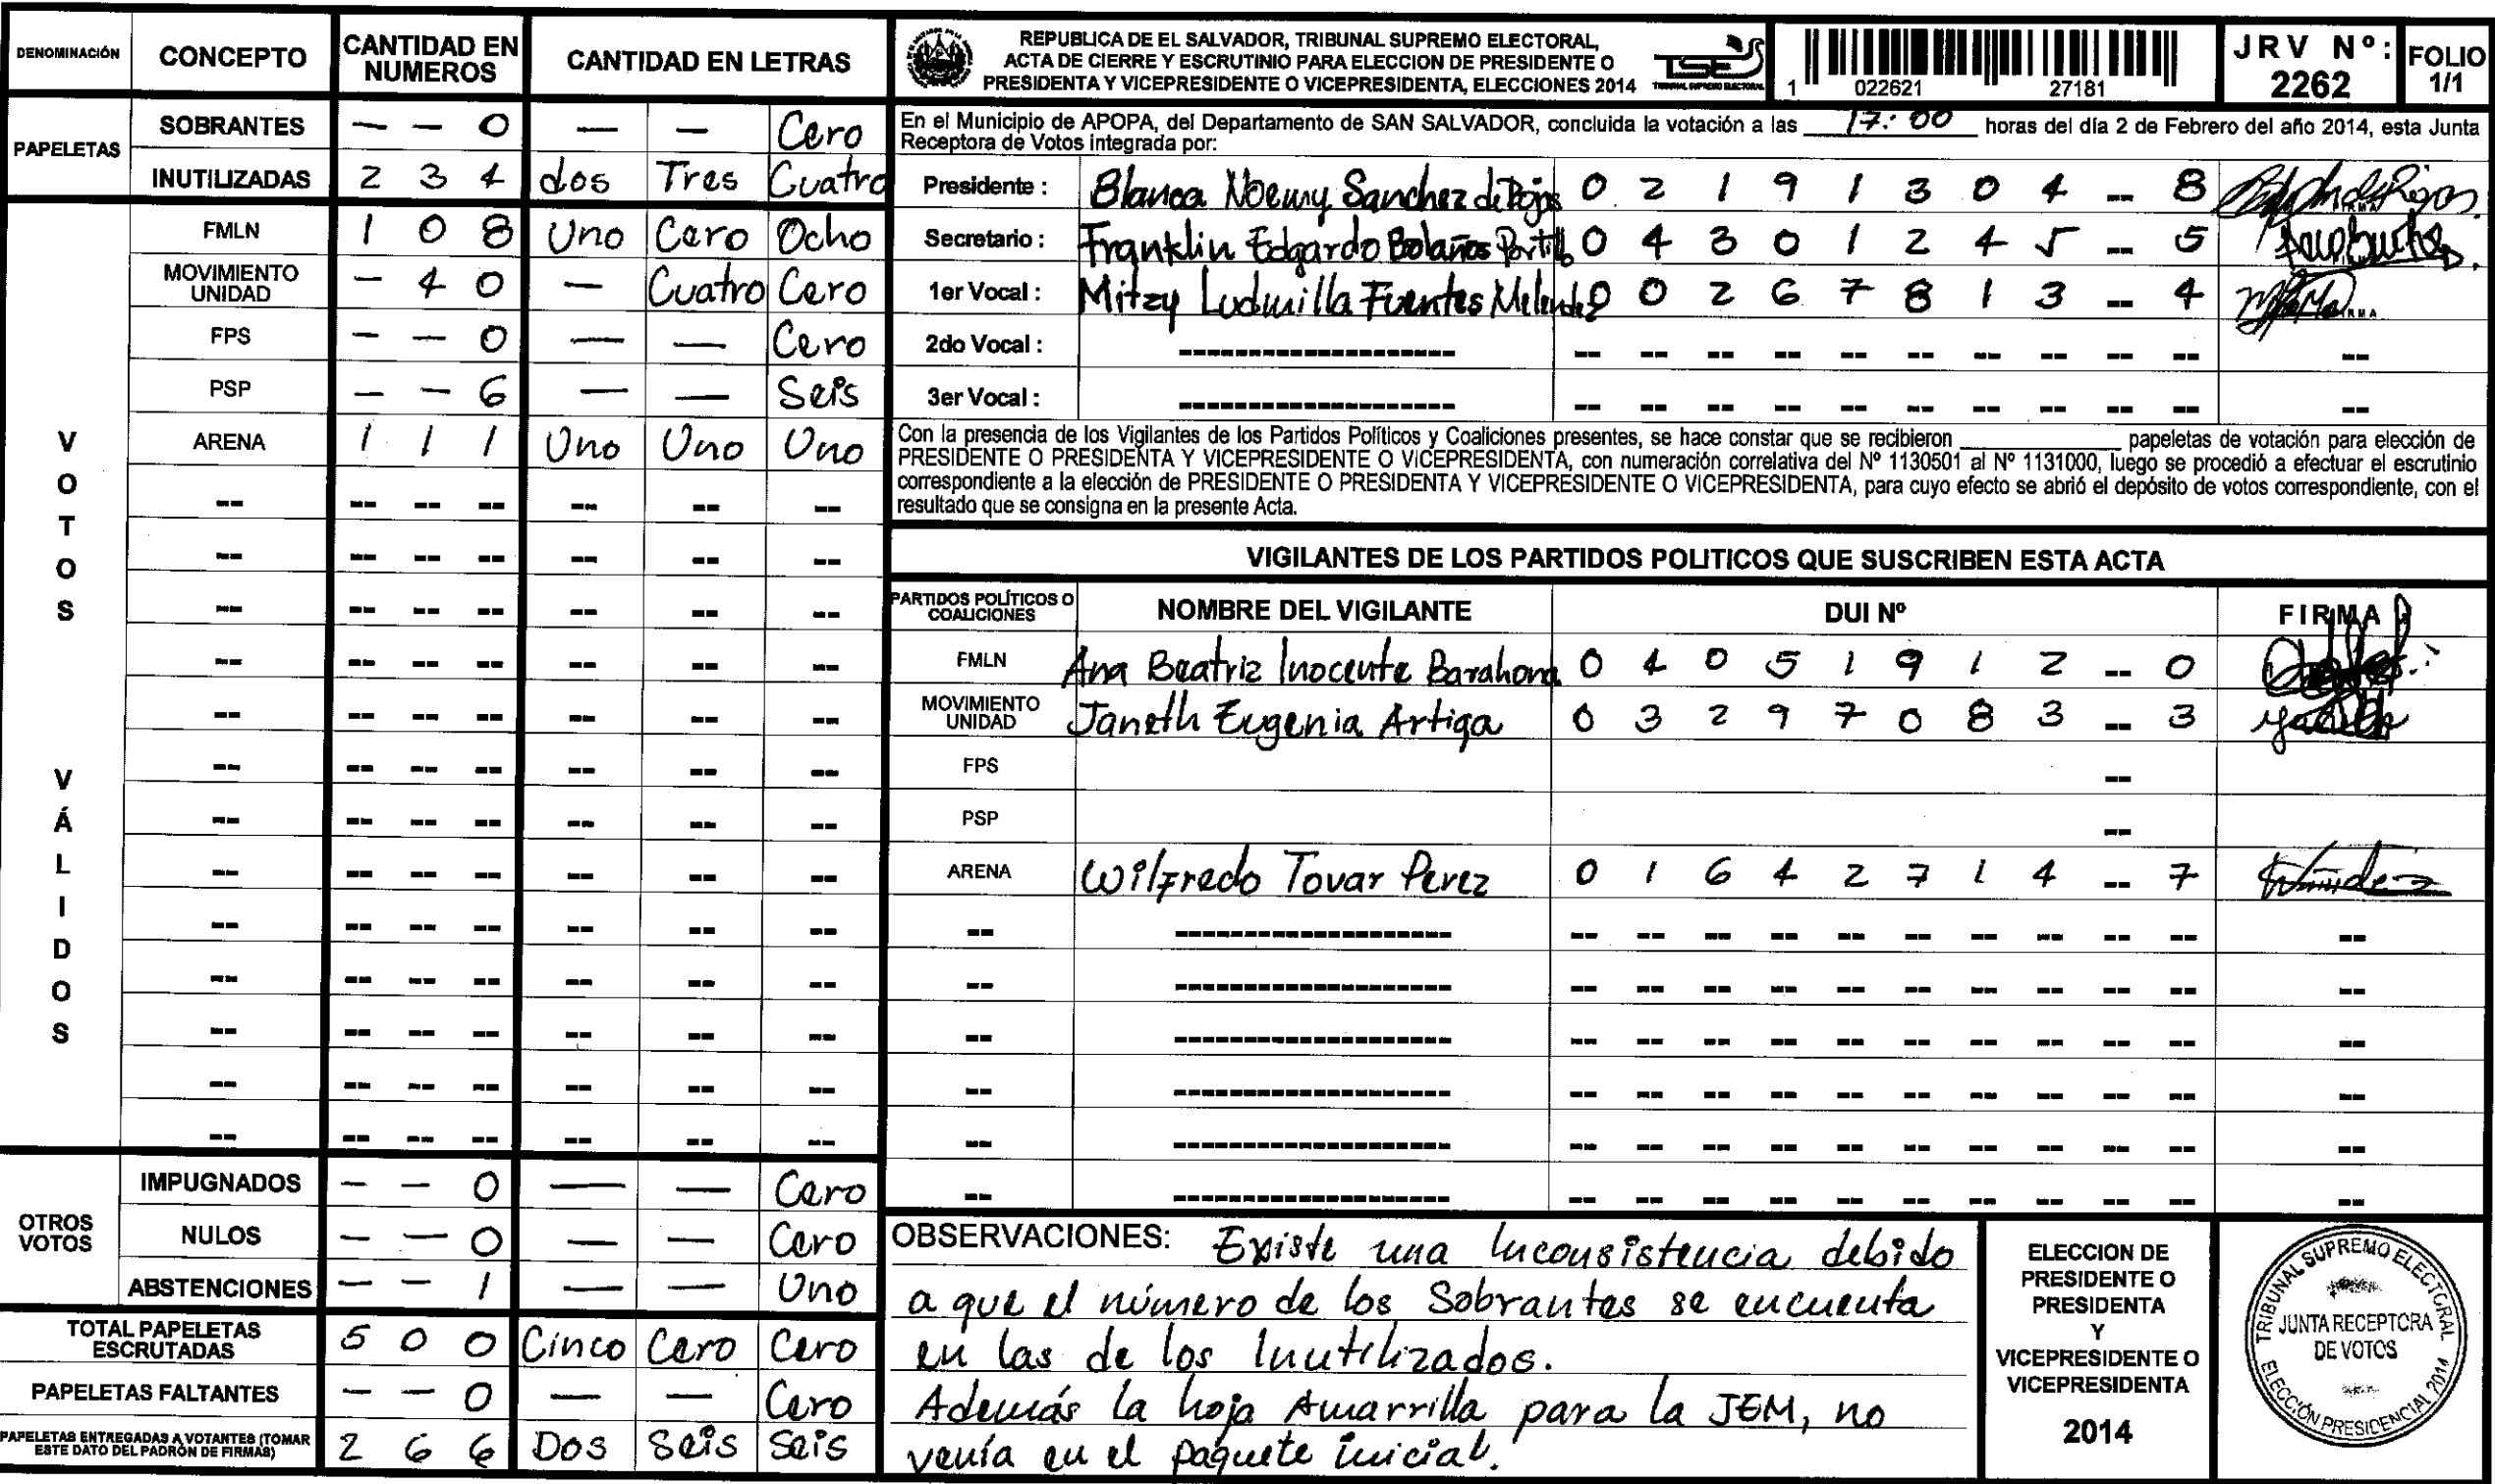 DENOMINACIÓN CONCEPTO CANTIDAD EN NUMEROS CANTIDAD EN LETRAS
PAPELETAS
SOBRANTES — — 0 — — Cero
INUTILIZADAS 2 3 4 dos Tres Cuatro
VOTOS VÁLIDOS
FMLN 1 0 8 Uno Cero Ocho
MOVIMIENTO UNIDAD — 4 0 — Cuatro Cero
FPS — — 0 — — Cero
PSP — — 6 — — Seis
ARENA 1 1 1 Uno Uno Uno
OTROS VOTOS
IMPUGNADOS — — 0 — — Cero
NULOS — — 0 — — Cero
ABSTENCIONES — — 1 — — Uno
TOTAL PAPELETAS ESCRUTADAS 5 0 0 Cinco Cero Cero
PAPELETAS FALTANTES — — 0 — — Cero
PAPELETAS ENTREGADAS A VOTANTES (TOMAR ESTE DATO DEL PADRÓN DE FIRMAS) 2 6 6 Dos Seis Seis
REPUBLICA DE EL SALVADOR, TRIBUNAL SUPREMO ELECTORAL,
ACTA DE CIERRE Y ESCRUTINIO PARA ELECCION DE PRESIDENTE O
PRESIDENTA Y VICEPRESIDENTE O VICEPRESIDENTA, ELECCIONES 2014
TSE
TRIBUNAL SUPREMO ELECTORAL
1 022621 27181
JRV Nº: 2262
FOLIO 1/1
En el Municipio de APOPA, del Departamento de SAN SALVADOR, concluida la votación a las 17:00 horas del día 2 de Febrero del año 2014, esta Junta
Receptora de Votos integrada por:
Presidente : Blanca Noemy Sanchez de Rojas 0 2 1 9 1 3 0 4 -- 8
Secretario : Franklin Edgardo Bolaños Portillo 0 4 3 0 1 2 4 5 -- 5
1er Vocal : Mitzy Ludmilla Fuentes Melendez 0 0 2 6 7 8 1 3 -- 4
2do Vocal :
3er Vocal :
Con la presencia de los Vigilantes de los Partidos Políticos y Coaliciones presentes, se hace constar que se recibieron ________ papeletas de votación para elección de
PRESIDENTE O PRESIDENTA Y VICEPRESIDENTE O VICEPRESIDENTA, con numeración correlativa del Nº 1130501 al Nº 1131000, luego se procedió a efectuar el escrutinio
correspondiente a la elección de PRESIDENTE O PRESIDENTA Y VICEPRESIDENTE O VICEPRESIDENTA, para cuyo efecto se abrió el depósito de votos correspondiente, con el
resultado que se consigna en la presente Acta.
VIGILANTES DE LOS PARTIDOS POLITICOS QUE SUSCRIBEN ESTA ACTA
PARTIDOS POLÍTICOS O COALICIONES NOMBRE DEL VIGILANTE DUI Nº FIRMA
FMLN Ana Beatriz Inocente Barahona 0 4 0 5 1 9 1 2 -- 0
MOVIMIENTO UNIDAD Janeth Eugenia Artiga 0 3 2 9 7 0 8 3 -- 3
FPS --
PSP --
ARENA Wilfredo Tovar Perez 0 1 6 4 2 7 1 4 -- 7
OBSERVACIONES: Existe una Inconsistencia debido
a que el número de los Sobrantes se encuenta
en las de los Inutilizados.
Además la hoja Amarrilla para la JEM, no
venía en el paquete inicial.
ELECCION DE
PRESIDENTE O
PRESIDENTA
Y
VICEPRESIDENTE O
VICEPRESIDENTA
2014
TRIBUNAL SUPREMO ELECTORAL
JUNTA RECEPTORA
DE VOTOS
ELECCIÓN PRESIDENCIAL 2014